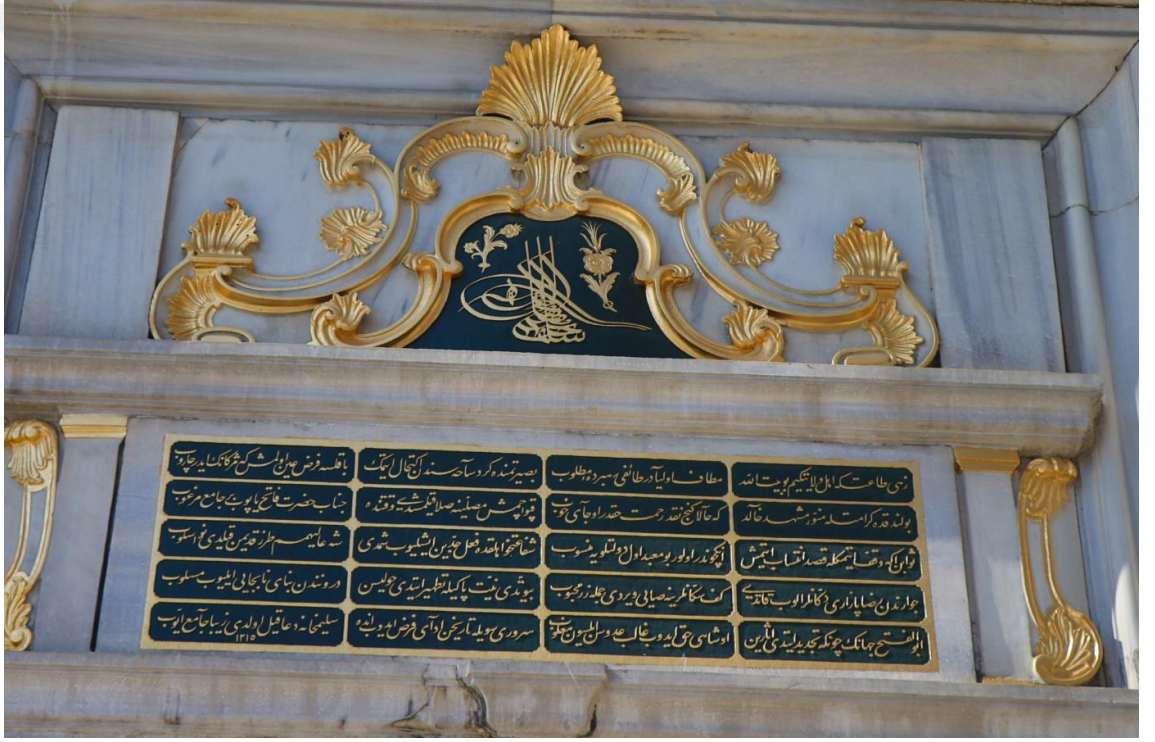 زهی طاعت که اهل دل ایتیکم بو بیت الله
مطاف اولیادر طائفی مطلوب
بصیرتمنده کرد ساحه سندن اکتحال ایتمک
یاقلسه فرض عین اولمش مژکانک ایدر جاروب
بولندقده کرامتله منور مشهد خالد
که حالا کنج نقد رحمت حقدر او جای خوب
قپو آچمش مصلینه صلا قیلمشدی وقتنده
جناب حضرت فاتح یاپوب بر جامع مرغوب
ثوابن اکه وقف ایتمکله قصد انتساب ایتمش
انکچوندر اولور بو معبد اول دولتلویه منسوب
شفاعتخواهلقده فعل خیرین ایشلیوب شمدی
شه عالیهمم طرز قدیمن قیلدی نو اسلوب
جوارندن رضا بازاری دکانلر آلوب قاتدی
کف سکانلرینه صایی ویردی جمله زر محبوب
بیوتدی نیت پاکیله تطهیر ایتدی حولیسن
دروندن بنای نابجایی ایلیوب مسلوب
ابو الفتح جهانک چونکه تجدید ایتدی آثارین
او شاهی حق ایدوب غالب عدوسن ایلسون مغلوب
سروری سویله تاریخن ادای فرض ایدوب بنده
سلیمخانه دعا قیل اولدی زیبا جامع ایوب
١٢١٥